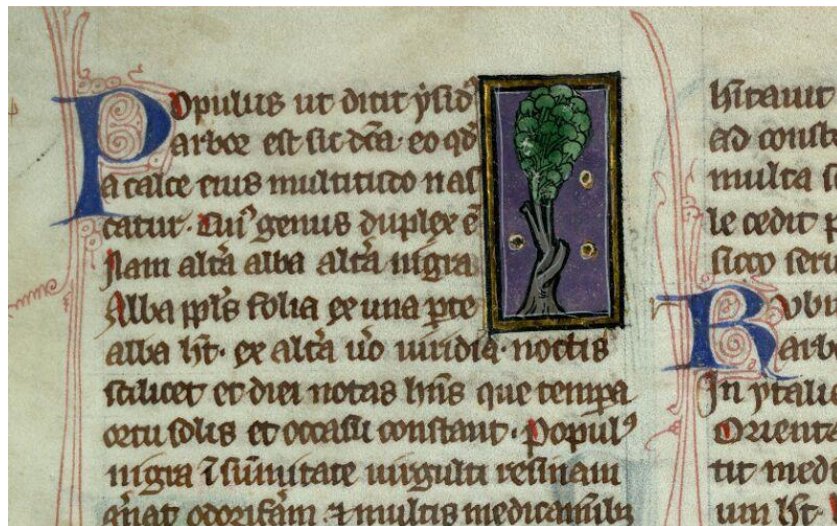 Populus ut dicit ysid᷒
arbor est sic dc̄a. eo qd̄
a calce eius multitudo nas
catur. Cui᷒ genus duplex ē
Nam altā alba altā nigra.
Alba ppl̄s folia ex una ꝑte
alba ht̄. ex altā ūo uiridia. noctis
scilicet et diei notas hn̄s que temꝑa
ortu solis et occasu constant. Popul᷒
nigra ī sūmitate uirgulti resinam
odorifām ⁊ multis
hītauit
ad
multa
le cedit
sicco
Rubu
arbo
In ytali
Orienta
tit med
um ht̄.